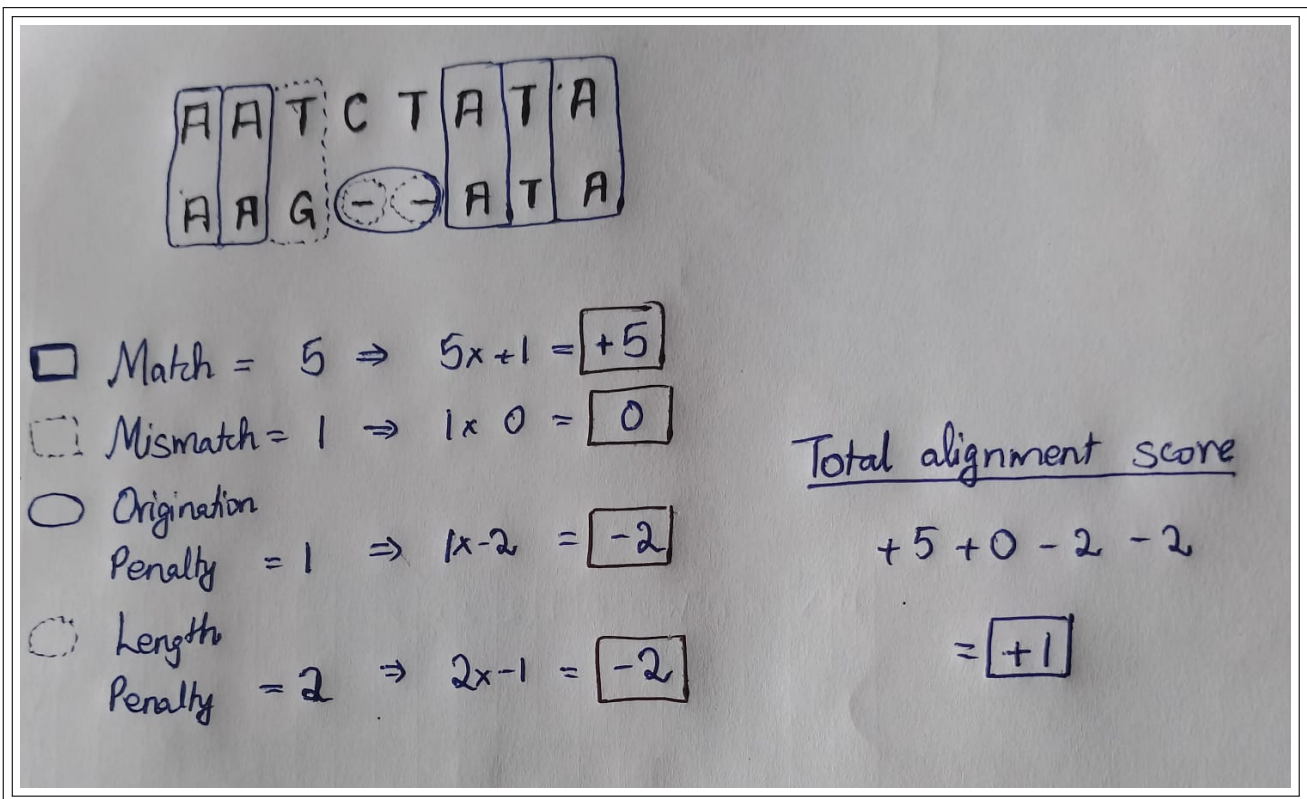 A A T C T A T A
A A G - - A T A
Match = 5 ⇒ 5x+1 = +5
Mismatch = 1 ⇒ 1x 0 = 0
Origination
Penalty = 1 ⇒ 1x-2 = -2
Length
Penalty = 2 ⇒ 2x-1 = -2
Total alignment score
+5 +0 - 2 - 2
= +1